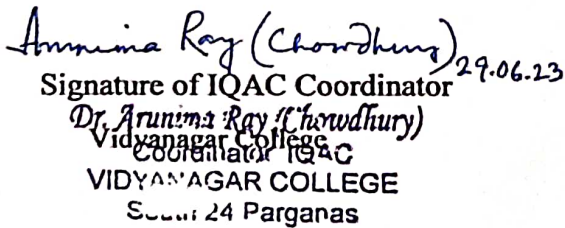 Arunima Ray (Chowdhury)
29.06.23
Signature of IQAC Coordinator
Dr. Arunima Ray (Chowdhury)
Vidyanagar College
Coordinator IQAC
VIDYANAGAR COLLEGE
South 24 Parganas